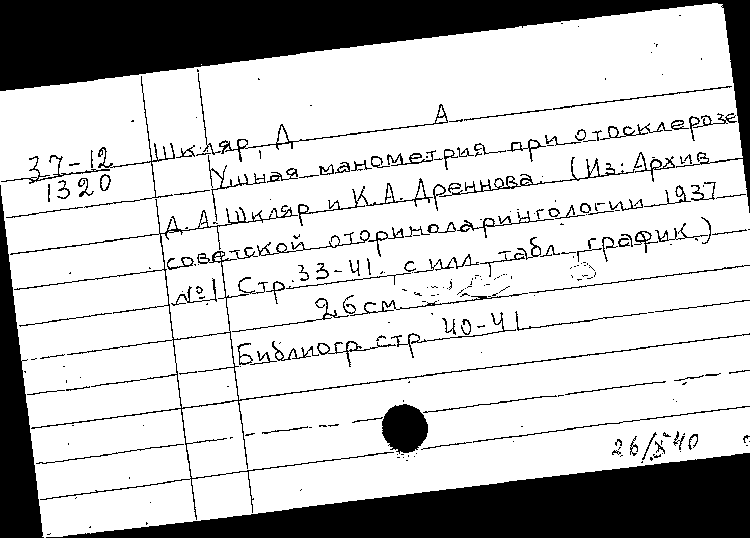 37-12
1320
Шкляр, Д. А
Ушная манометрия при отосклерозе
Д. А. Шкляр и К. А. Дреннова. (Из: Архив
советской оториноларингологии 1937
№1 Стр. 33-41. с илл., табл., график.)
26 см.
Библиогр. стр. 40-41.
26/X 40